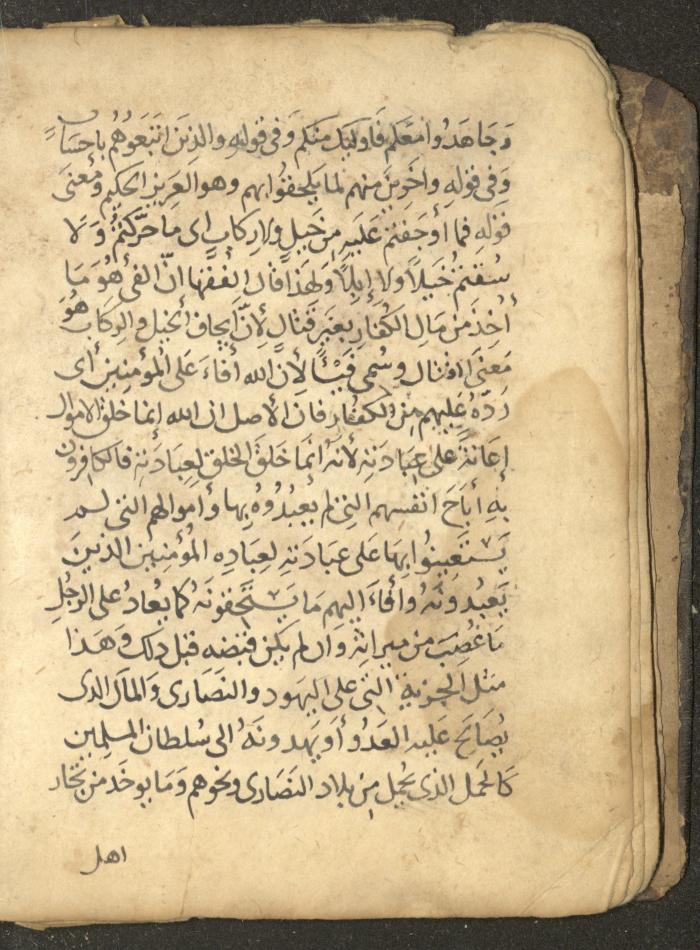 وَجَاهَدُوا مَعَكم فَاوليك منكم وَفى قوله والذِينَ اتبَعَوُهُم باحسَان
وَفى قولهِ واخَرِينَ منهم لما يَلحقوُا بهم وهو العَزِيز الحكيم ومعَنَى
قولهِ فما أوجَفتم عَليهِ مِن خَيلٍ ولا رِكابٍ اى ما حَرّكتمُ وَلا
سُقتمُ خَيلاً ولا إبِلاً ولهَذا قال الفقها انّ الفئ هُوَ مَا
أُخِذَ مَن مَالِ الكُفارِ بغَيرِ قتالٍ لأِنّ ايجاف الخيل والرِكَابِ هُوَ
مَعنَى القتال وسُمى فَيْئاً لأنَ الله أفاءَ عَلى المؤمنِين أى
رَدّهُ عَليهم مِن الكفار فان الأصل ان الله انما خلق الاموال
إعَانةً على عِبَادَتِهِ لأنهُ إنمَا خَلقَ الخلق لِعِبَادَتهِ فالكافِرُون
بهِ أبَاحَ انفسهم التِى لم يعبُدُوهُ بها وأموالهم التى لم
يَسْتَعِينوُا بِهَا عَلى عبَادَتهِ لعِبادِه المُؤمِنيِن الذِينَ
يَعبُدونَهُ وأفاءَ اليهم مَا يَسْتَحِقونَهُ كما يُعَادُ على الرجُلِ
مَا غُصِبَ من ميراثِهِ وَان لم يكن قبَضه قبل ذلك وَهَذا
مثل الجزية التى على اليهود والنصَارى وَالمال الذى
يُصَالحَ عَليه العَدُو أو يَهدونَهُ الى سُلطان المسلمين
كَالحمَل الذى يُحمل مِن بلاد النصَارى ونحوهم وَمَا يوخَذ من تجار
اهل